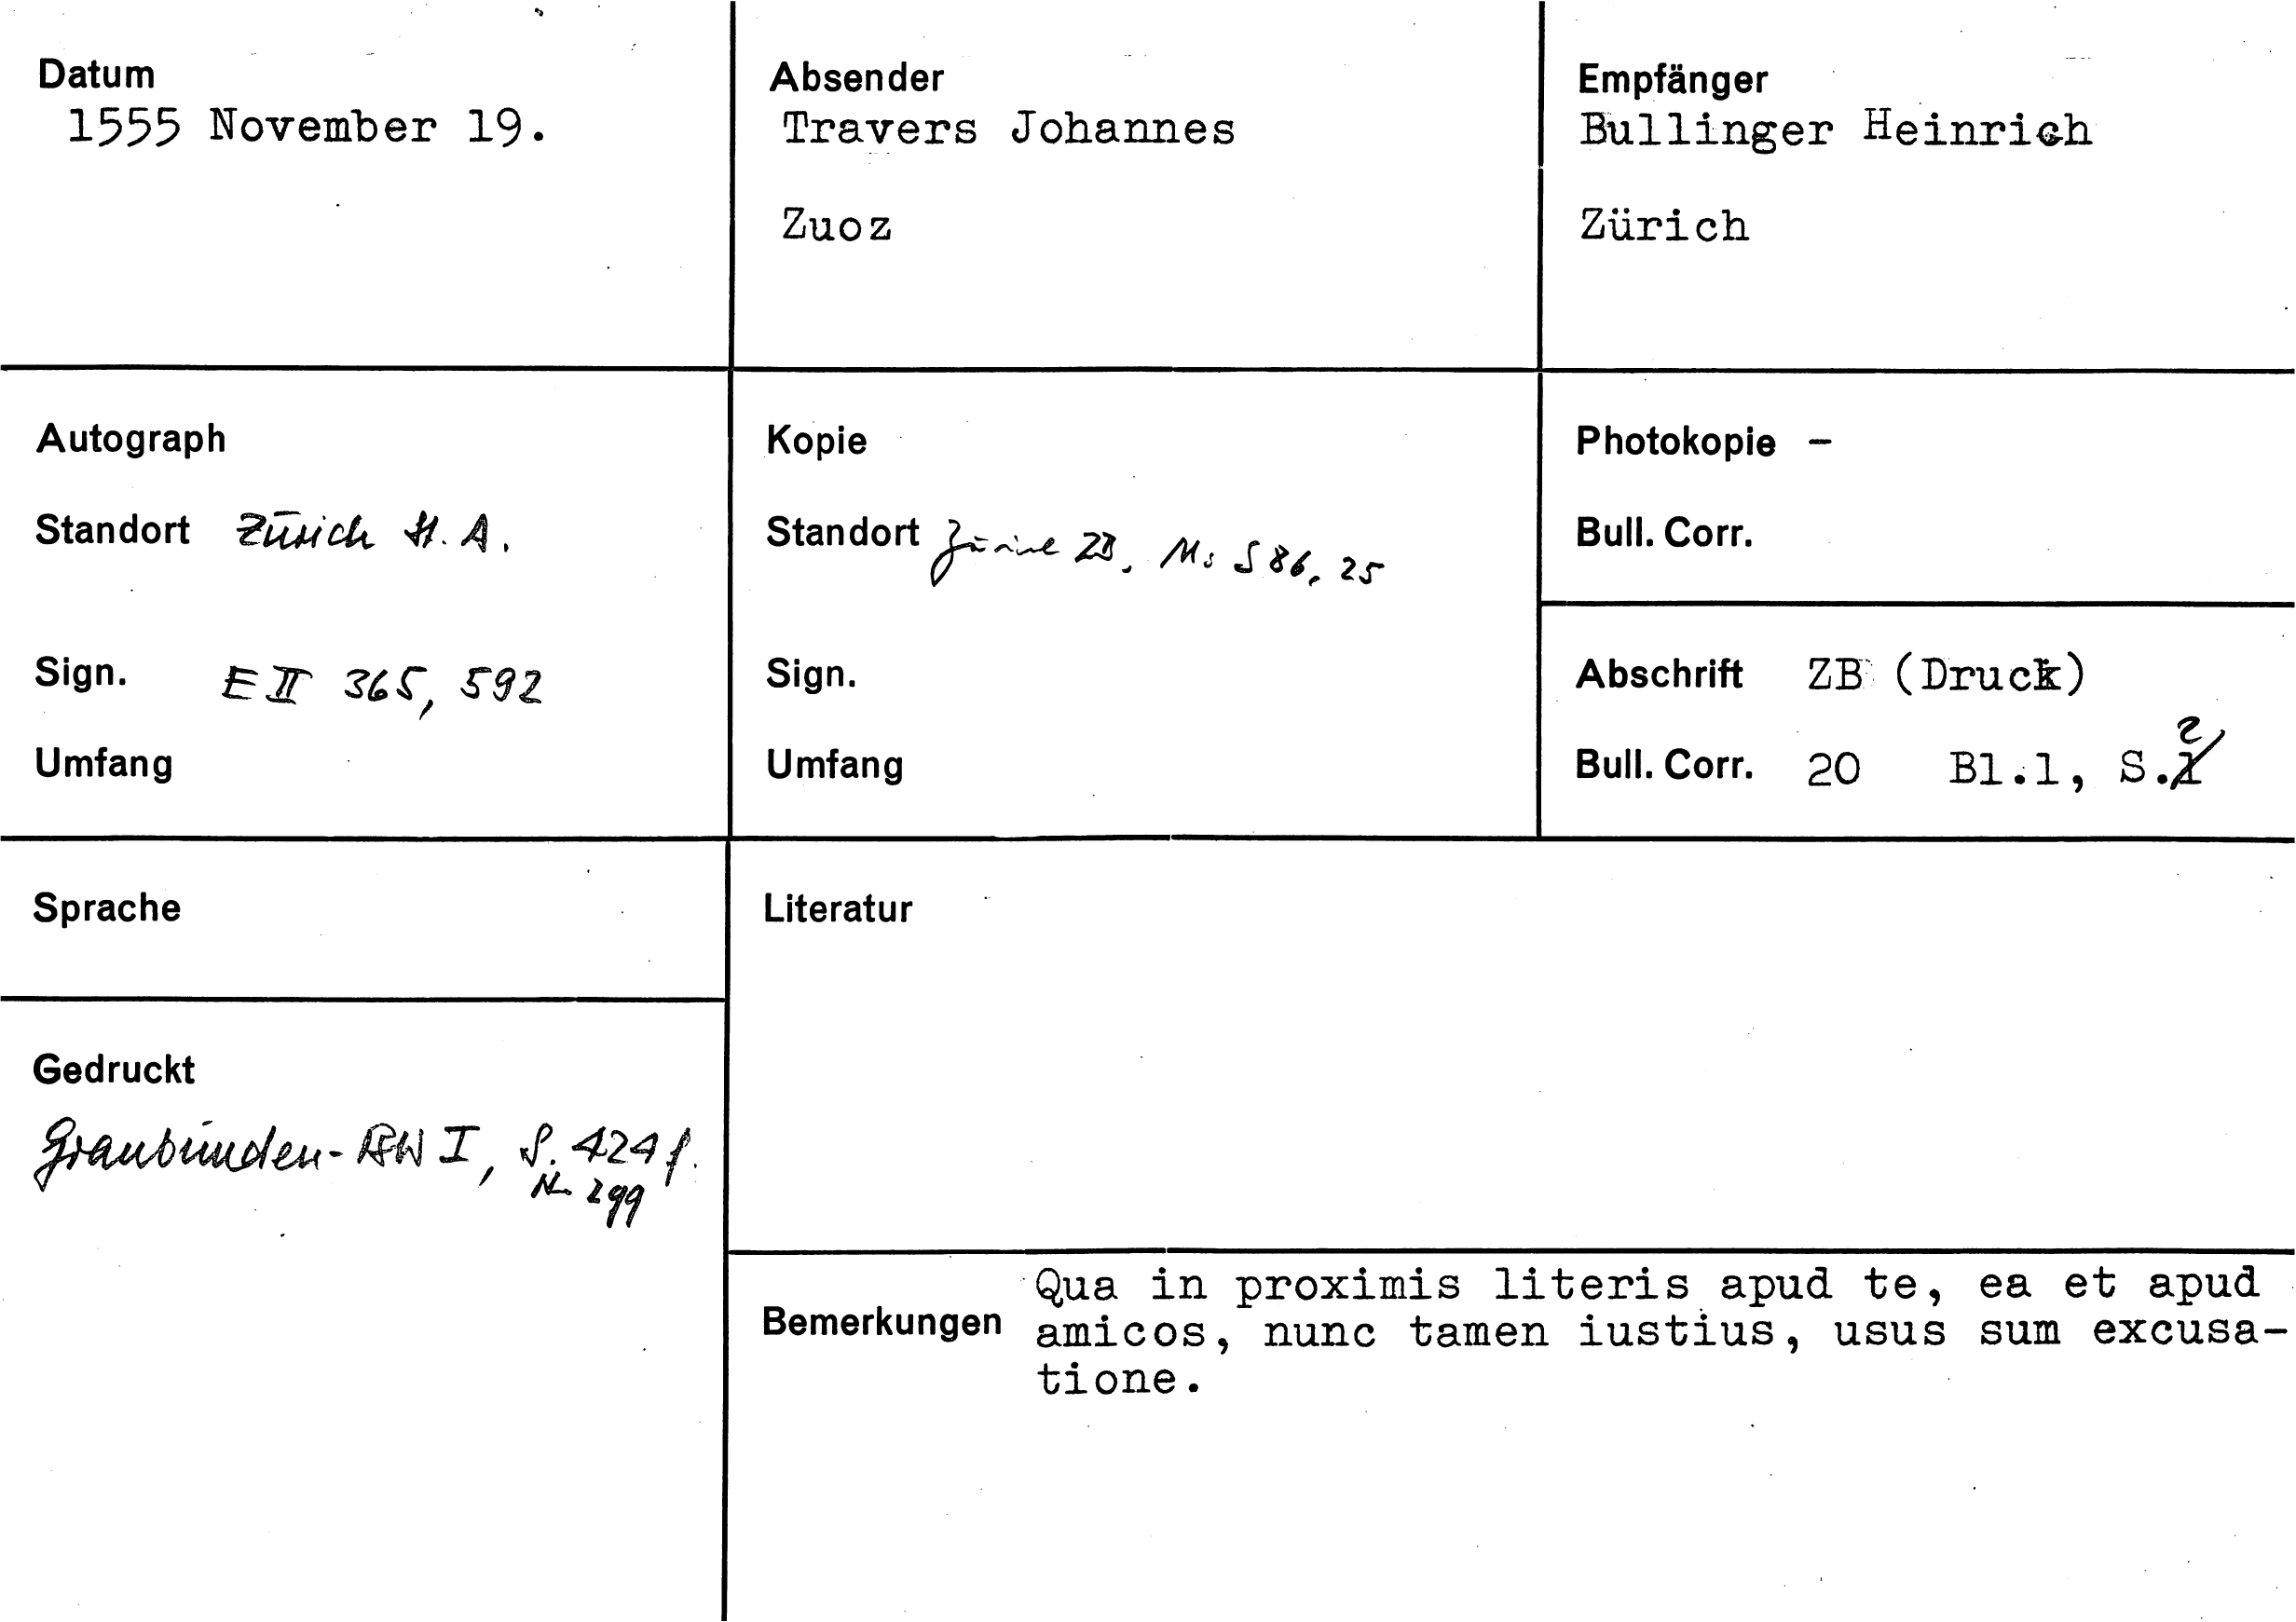 Datum
1555 November 19.
Absender
Travers Johannes
Zuoz
Empfänger
Bullinger Heinrich
Zürich
Autograph
Standort Zürich St. A.
Sign. E II 365, 592
Umfang
Kopie
Standort Zürich ZB, Ms S 86, 25
Sign.
Umfang
Photokopie –
Bull. Corr.
Abschrift ZB (Druck)
Bull. Corr. 20 Bl.1, S.2
Sprache
Gedruckt
Graubünden-BW I, S. 424 f.
Nr. 299
Literatur
Bemerkungen
Qua in proximis literis apud te, ea et apud
amicos, nunc tamen iustius, usus sum excusa-
tione.